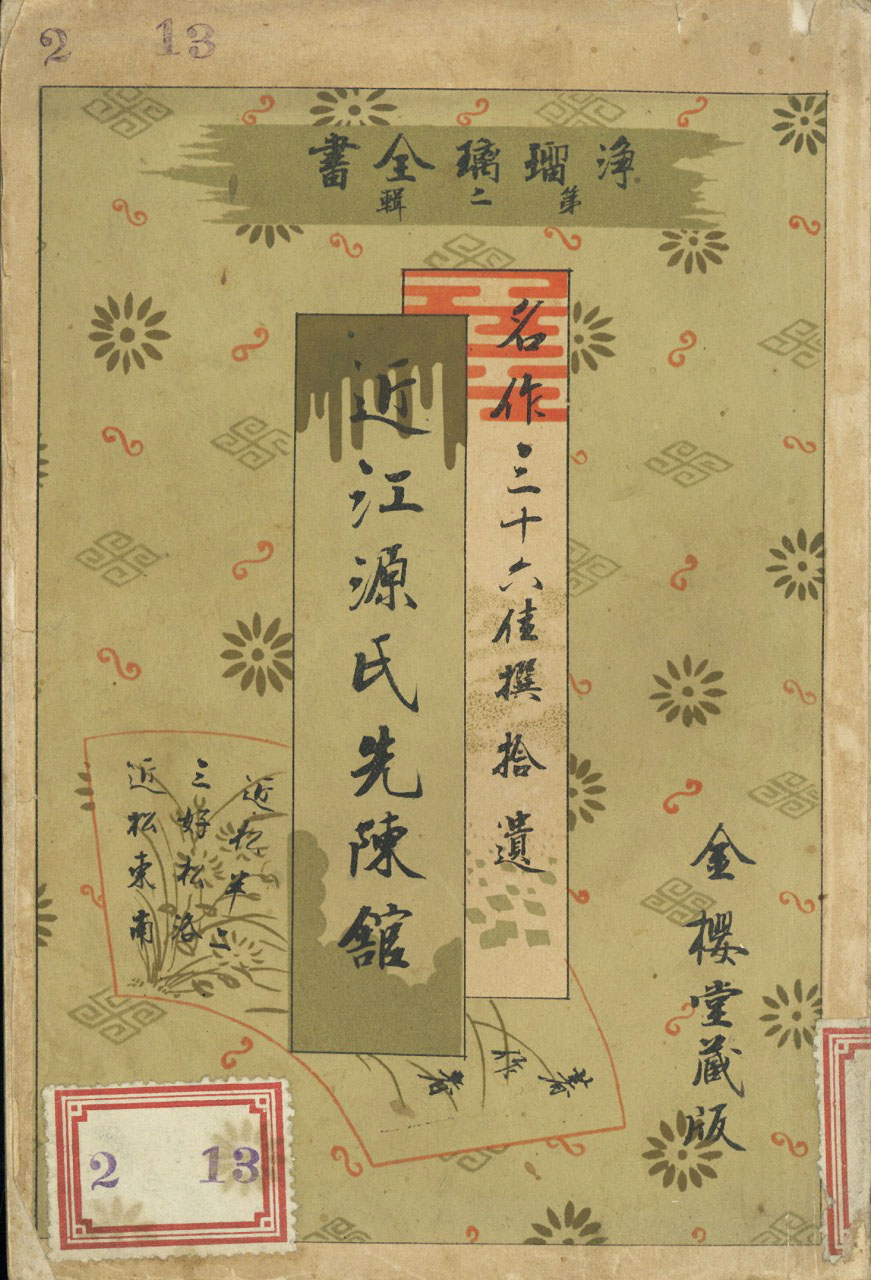 2 13
浄瑠璃全書
第二輯
名作三十六佳撰拾遺
近江源氏先陳舘
近松半二
三好松洛
近松東南
金櫻堂蔵版
2 13